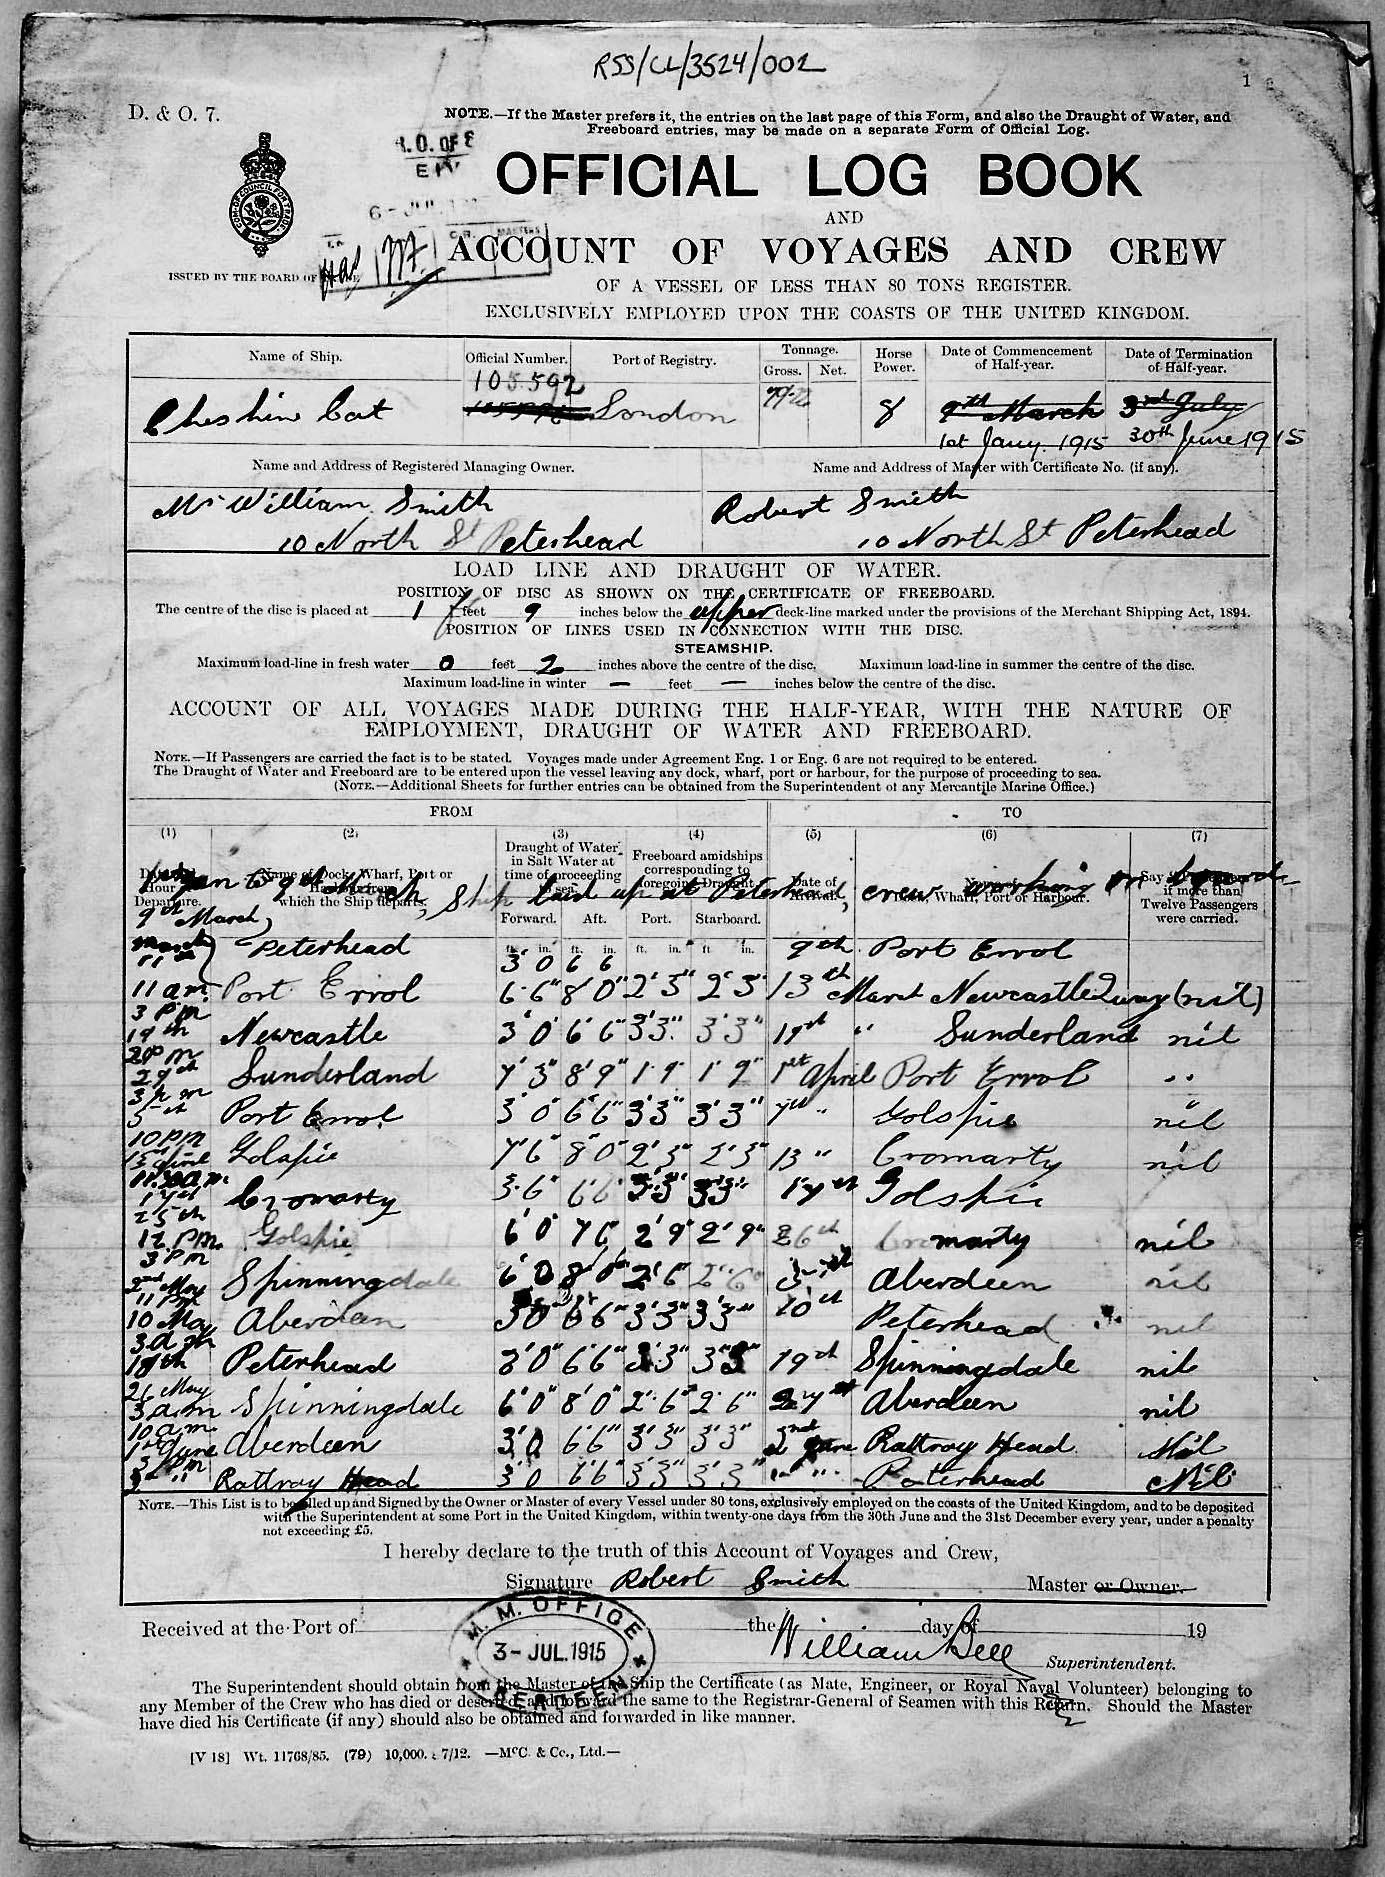 RSS/CL/3524/001
1
D. & O. 7.
NOTE.—If the Master prefers it, the entries on the last page of this Form, and also the Draught of Water, and
Freeboard entries, may be made on a separate Form of Official Log.
OFFICIAL LOG BOOK
AND
ACCOUNT OF VOYAGES AND CREW
ISSUED BY THE BOARD OF
OF A VESSEL OF LESS THAN 80 TONS REGISTER.
EXCLUSIVELY EMPLOYED UPON THE COASTS OF THE UNITED KINGDOM.
Name of Ship. Official Number. Port of Registry. Tonnage. Gross. Net. Horse Power. Date of Commencement of Half-year. Date of Termination of Half-year.
105.592
Cheshire Cat London 8 9th March 3rd July
1st Jany. 1915 30th June 1915
Name and Address of Registered Managing Owner. Name and Address of Master with Certificate No. (if any).
Mr William Smith Robert Smith
10 North St Peterhead 10 North St Peterhead
LOAD LINE AND DRAUGHT OF WATER.
POSITION OF DISC AS SHOWN ON THE CERTIFICATE OF FREEBOARD.
The centre of the disc is placed at 1 feet 9 inches below the upper deck-line marked under the provisions of the Merchant Shipping Act, 1894.
POSITION OF LINES USED IN CONNECTION WITH THE DISC.
STEAMSHIP.
Maximum load-line in fresh water 0 feet 2 inches above the centre of the disc. Maximum load-line in summer the centre of the disc.
Maximum load-line in winter — feet — inches below the centre of the disc.
ACCOUNT OF ALL VOYAGES MADE DURING THE HALF-YEAR, WITH THE NATURE OF
EMPLOYMENT, DRAUGHT OF WATER AND FREEBOARD.
NOTE.—If Passengers are carried the fact is to be stated. Voyages made under Agreement Eng. 1 or Eng. 6 are not required to be entered.
The Draught of Water and Freeboard are to be entered upon the vessel leaving any dock, wharf, port or harbour, for the purpose of proceeding to sea.
(NOTE.—Additional Sheets for further entries can be obtained from the Superintendent of any Mercantile Marine Office.)
FROM TO
(1) (2) (3) (4) (5) (6) (7)
Draught of Water in Salt Water at time of proceeding to sea. Freeboard amidships corresponding to foregoing Draught.
Name of Dock, Wharf, Port or
which the Ship departs. Date of Dock, Wharf, Port or Harbour. if more than Twelve Passengers were carried.
to 9th March, Ship laid up at Peterhead, crew working on board
Forward. Aft. Port. Starboard.
9th March Peterhead 3 0 6 6 9th Port Errol
11 am Port Errol 6'6" 8'0" 2'3" 2'3" 13th March Newcastle Quay (nil)
3 PM 19th Newcastle 3'0" 6'6" 3'3" 3'3" 19th " Sunderland nil
29th Sunderland 7'3" 8'9" 1'9" 1'9" 1st April Port Errol "
3 pm 5th Port Errol 3'0" 6'6" 3'3" 3'3" 7th " Golspie nil
10 PM Golspie 7'6" 8'0" 2'3" 2'3" 13 " Cromarty nil
17th Cromarty 3'6" 6'6" 3'3" 3'3" 17th Golspie
25th 12 PM Golspie 6'0" 7'6" 2'9" 2'9" 26th Cromarty nil
3 PM 2nd May Spinningdale 6'0" 8'0" 2'6" 2'6" Aberdeen nil
11 PM 10 May Aberdeen 3'0" 6'6" 3'3" 3'3" 10th Peterhead nil
18th Peterhead 6'6" 3'3" 3'3" 19th Spinningdale nil
26 May 3 a.m Spinningdale 6'0" 8'0" 2'6" 2'6" 27th Aberdeen nil
10 a.m. 1st June Aberdeen 3'0" 6'6" 3'3" 3'3" 2nd June Rattray Head Nil
3 PM Rattray Head 3'0" 6'6" 3'3" 3'3" " " Peterhead Nil
NOTE.—This List is to be filled up and Signed by the Owner or Master of every Vessel under 80 tons, exclusively employed on the coasts of the United Kingdom, and to be deposited
with the Superintendent at some Port in the United Kingdom, within twenty-one days from the 30th June and the 31st December every year, under a penalty
not exceeding £5.
I hereby declare to the truth of this Account of Voyages and Crew,
Signature Robert Smith Master or Owner.
Received at the Port of the day of 19
M. M. OFFICE
3- JUL.1915
ABERDEEN
William Bell Superintendent.
The Superintendent should obtain from the Master of the Ship the Certificate (as Mate, Engineer, or Royal Naval Volunteer) belonging to
any Member of the Crew who has died or deserted, and forward the same to the Registrar-General of Seamen with this Return. Should the Master
have died his Certificate (if any) should also be obtained and forwarded in like manner.
[V 18] Wt. 11768/85. (79) 10,000. 7/12. —McC. & Co., Ltd.—